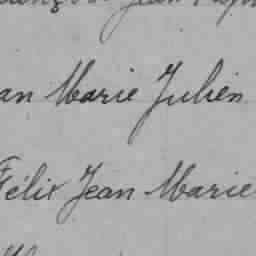 Jean
an Marie Julien
Félix Jean Marie